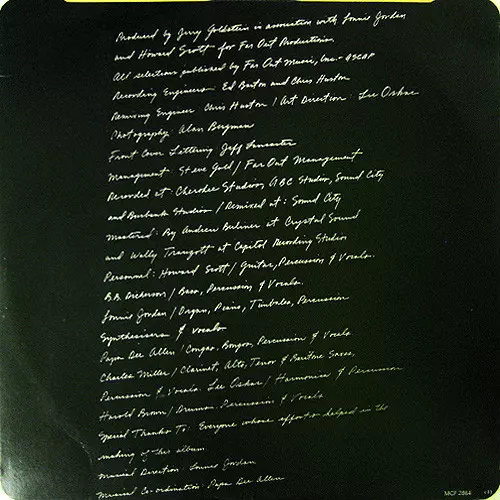 Produced by Jerry Goldstein in association with Lonnie Jordan
and Howard Scott for Far Out Productions.
All selections published by Far Out Music, Inc. - ASCAP
Recording Engineers: Ed Barton and Chris Huston
Remixing Engineer: Chris Huston / Art Direction: Lee Oskar
Photography: Alan Bergman
Front Cover Lettering Jeff Lancaster
Management: Steve Gold / Far Out Management
Recorded at: Cherokee Studios, ABC Studios, Sound City
and Burbank Studios / Remixed at: Sound City
Mastered: By Andrew Berliner at Crystal Sound
and Wally Traugott at Capitol Recording Studios
Personnel: Howard Scott / Guitar, Percussion & Vocals.
B.B. Dickerson / Bass, Percussion & Vocals.
Lonnie Jordan / Organ, Piano, Timbales, Percussion
Synthesizers & vocals
Papa Dee Allen / Congas, Bongos, Percussion & Vocals
Charles Miller / Clarinet, Alto, Tenor & Baritone Saxes,
Percussion & Vocals. Lee Oskar / Harmonica & Percussion
Harold Brown / Drums, Percussion & Vocals
Special Thanks To: Everyone whose efforts helped in the
making of this album.
Musical Direction: Lonnie Jordan
Musical Co-ordination: Papa Dee Allen
MCF 2864